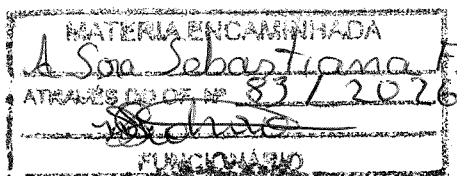 MATERIA ENCAMINHADA
A Sora Sebastiana
ATRAVÉS DO OF. Nº 83 / 2026
FUNCIONÁRIO